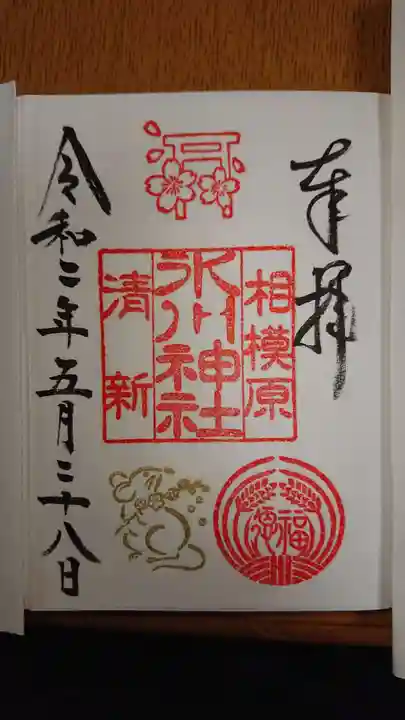 奉拝
相模原
氷川神社
清新
福恩
令和二年五月二十八日